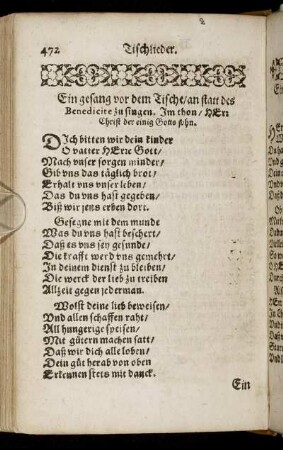 472 Tischlieder.
Ein gesang vor dem Tische/an statt des
Benedicite zu singen. Im thon/ HErr
Christ der einig Gotts sohn.
DIch bitten wir dein kinder
O vatter HErr Gott/
Mach vnser sorgen minder/
Gib vns das täglich brot/
Erhalt vns vnser leben/
Das du vns hast gegeben/
Biß wir jens erben dort.
Gesegne mit dem munde
Was du vns hast beschert/
Daß es vns sey gesunde/
Die krafft werd vns gemehrt/
In deinem dienst zu bleiben/
Die werck der lieb zu treiben
Allzeit gegen jederman.
Wolst deine lieb beweisen/
Vnd allen schaffen raht/
All hungerige speisen/
Mit gütern machen satt/
Daß wir dich alle loben/
Dein güt herab von oben
Erkennen stets mit danck.
Ein